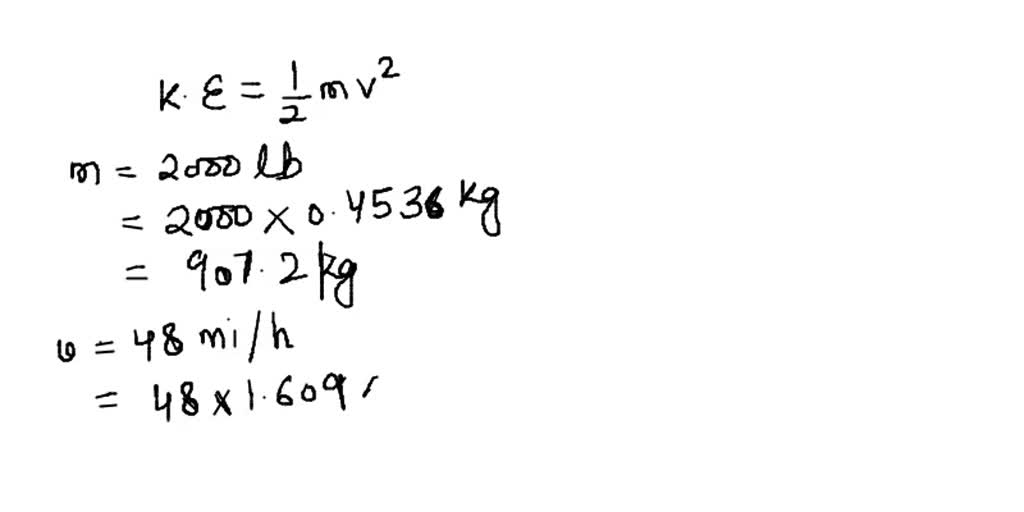 K.E = 1/2 mv²
m = 2000 lb
= 2000 × 0.4536 kg
= 907.2 kg
v = 48 mi/h
= 48 × 1.609